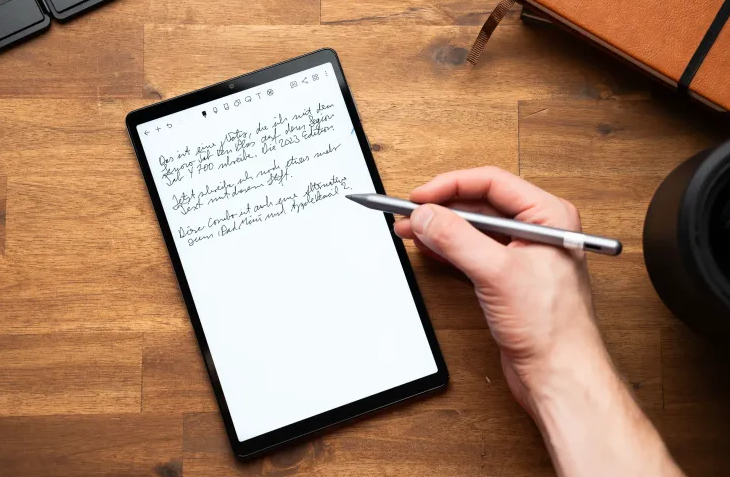 Das ist eine Notiz, die ich mit dem
Lenovo Tab Pen Plus auf dem Legion
Tab Y700 schreibe. Die 2023 Edition
Jetzt schreibe ich noch etwas mehr
Text mit diesem Stift.
Diese Combo ist auch eine Alternative
zum iPad Mini und Apple Pencil 2.